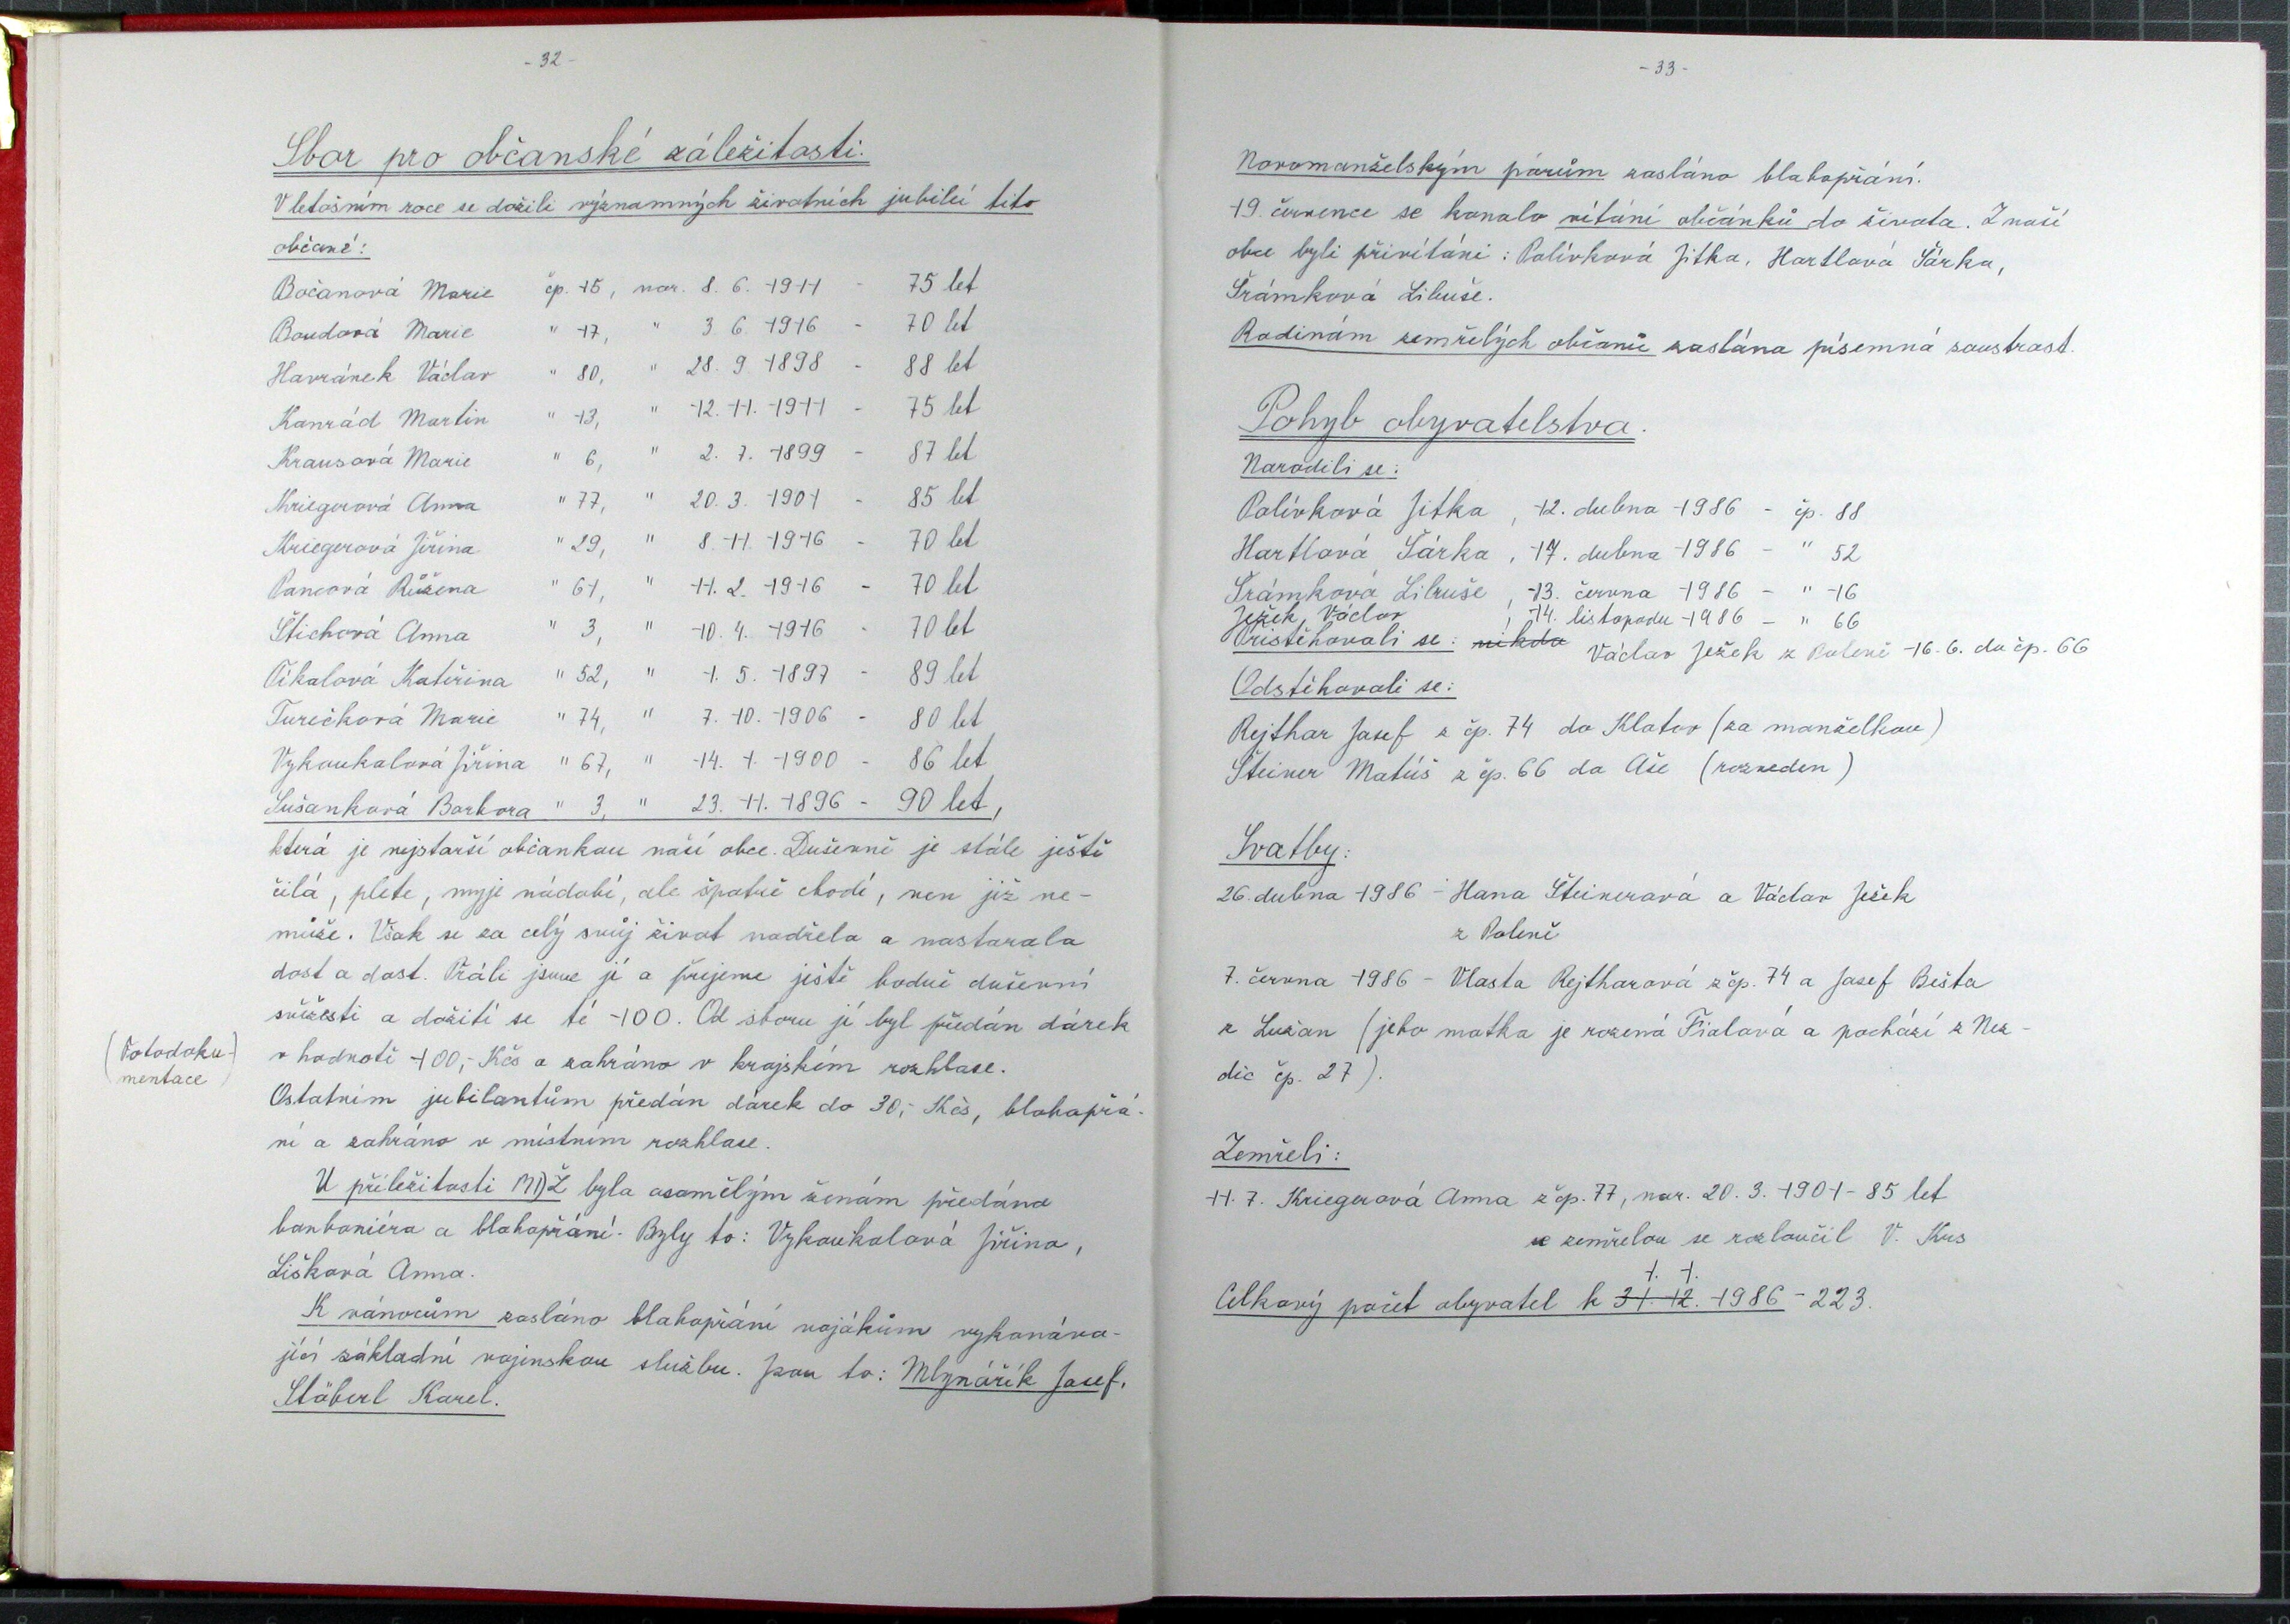 - 32 -
Sbor pro občanské záležitosti.
V letošním roce se dožili významných životních jubileí tito
občané:
Bočanová Marie čp. 15, nar. 8. 6. 1911 - 75 let
Boudová Marie " 17, " 3. 6. 1916 - 70 let
Havránek Václav " 80, " 28. 9. 1898 - 88 let
Konrád Martin " 13, " 12. 11. 1911 - 75 let
Krausová Marie " 6, " 2. 7. 1899 - 87 let
Kriegerová Anna " 77, " 20. 3. 1901 - 85 let
Kriegerová Jiřina " 29, " 8. 11. 1916 - 70 let
Pancová Růžena " 61, " 11. 2. 1916 - 70 let
Štichová Anna " 3, " 10. 4. 1916 - 70 let
Čikalová Kateřina " 52, " 1. 5. 1897 - 89 let
Turečková Marie " 74, " 7. 10. 1906 - 80 let
Vykoukalová Jiřina " 67, " 14. 1. 1900 - 86 let
Sušanková Barbora " 3, " 23. 11. 1896 - 90 let,
která je nejstarší občankou naší obce. Duševně je stále ještě
čilá, plete, myje nádobí, ale špatně chodí, ven již ne-
může. Však se za celý svůj život nadřela a nastarala
dost a dost. Přáli jsme jí a přejeme ještě hodně duševní
svěžesti a dožití se té 100. Od sboru jí byl předán dárek
(Fotodoku-
mentace)
v hodnotě 100,- Kčs a zahráno v krajském rozhlase.
Ostatním jubilantům předán dárek do 30,- Kčs, blahopřá-
ní a zahráno v místním rozhlase.
U příležitosti MDŽ byla osamělým ženám předána
bonboniéra a blahopřání. Byly to: Vykoukalová Jiřina,
Lišková Anna.
K vánocům zasláno blahopřání vojákům vykonáva-
jící základní vojenskou službu. Jsou to: Mlynářík Josef,
Stöberl Karel.
- 33 -
Novomanželským párům zasláno blahopřání.
19. července se konalo vítání občánků do života. Z naší
obce byli přivítáni: Polívková Jitka, Hartlová Šárka,
Šrámková Libuše.
Rodinám zemřelých občanů zaslána písemná soustrast.
Pohyb obyvatelstva.
Narodili se:
Polívková Jitka, 12. dubna 1986 - čp. 88
Hartlová Šárka, 17. dubna 1986 - " 52
Šrámková Libuše, 13. června 1986 - " 16
Ježek Václav, 14. listopadu 1986 - " 66
Přistěhovali se: nikdo Václav Ježek z Poleně 16. 6. do čp. 66
Odstěhovali se:
Rejthar Josef z čp. 74 do Klatov (za manželkou)
Šteiner Matúš z čp. 66 do Aše (rozveden)
Svatby:
26. dubna 1986 - Hana Šteinerová a Václav Ježek
z Poleně
7. června 1986 - Vlasta Rejtharová z čp. 74 a Josef Bešta
z Lužan (jeho matka je rozená Fialová a pochází z Nez-
dic čp. 27).
Zemřeli:
11. 7. Kriegerová Anna z čp. 77, nar. 20. 3. 1901 - 85 let
se zemřelou se rozloučil V. Kus
1. 1.
Celkový počet obyvatel k 31. 12. 1986 - 223.